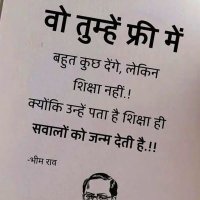 वो तुम्हें फ्री में
बहुत कुछ देंगे, लेकिन
शिक्षा नहीं.!
क्योंकि उन्हें पता है शिक्षा ही
सवालों को जन्म देती है.!!
-भीम राव